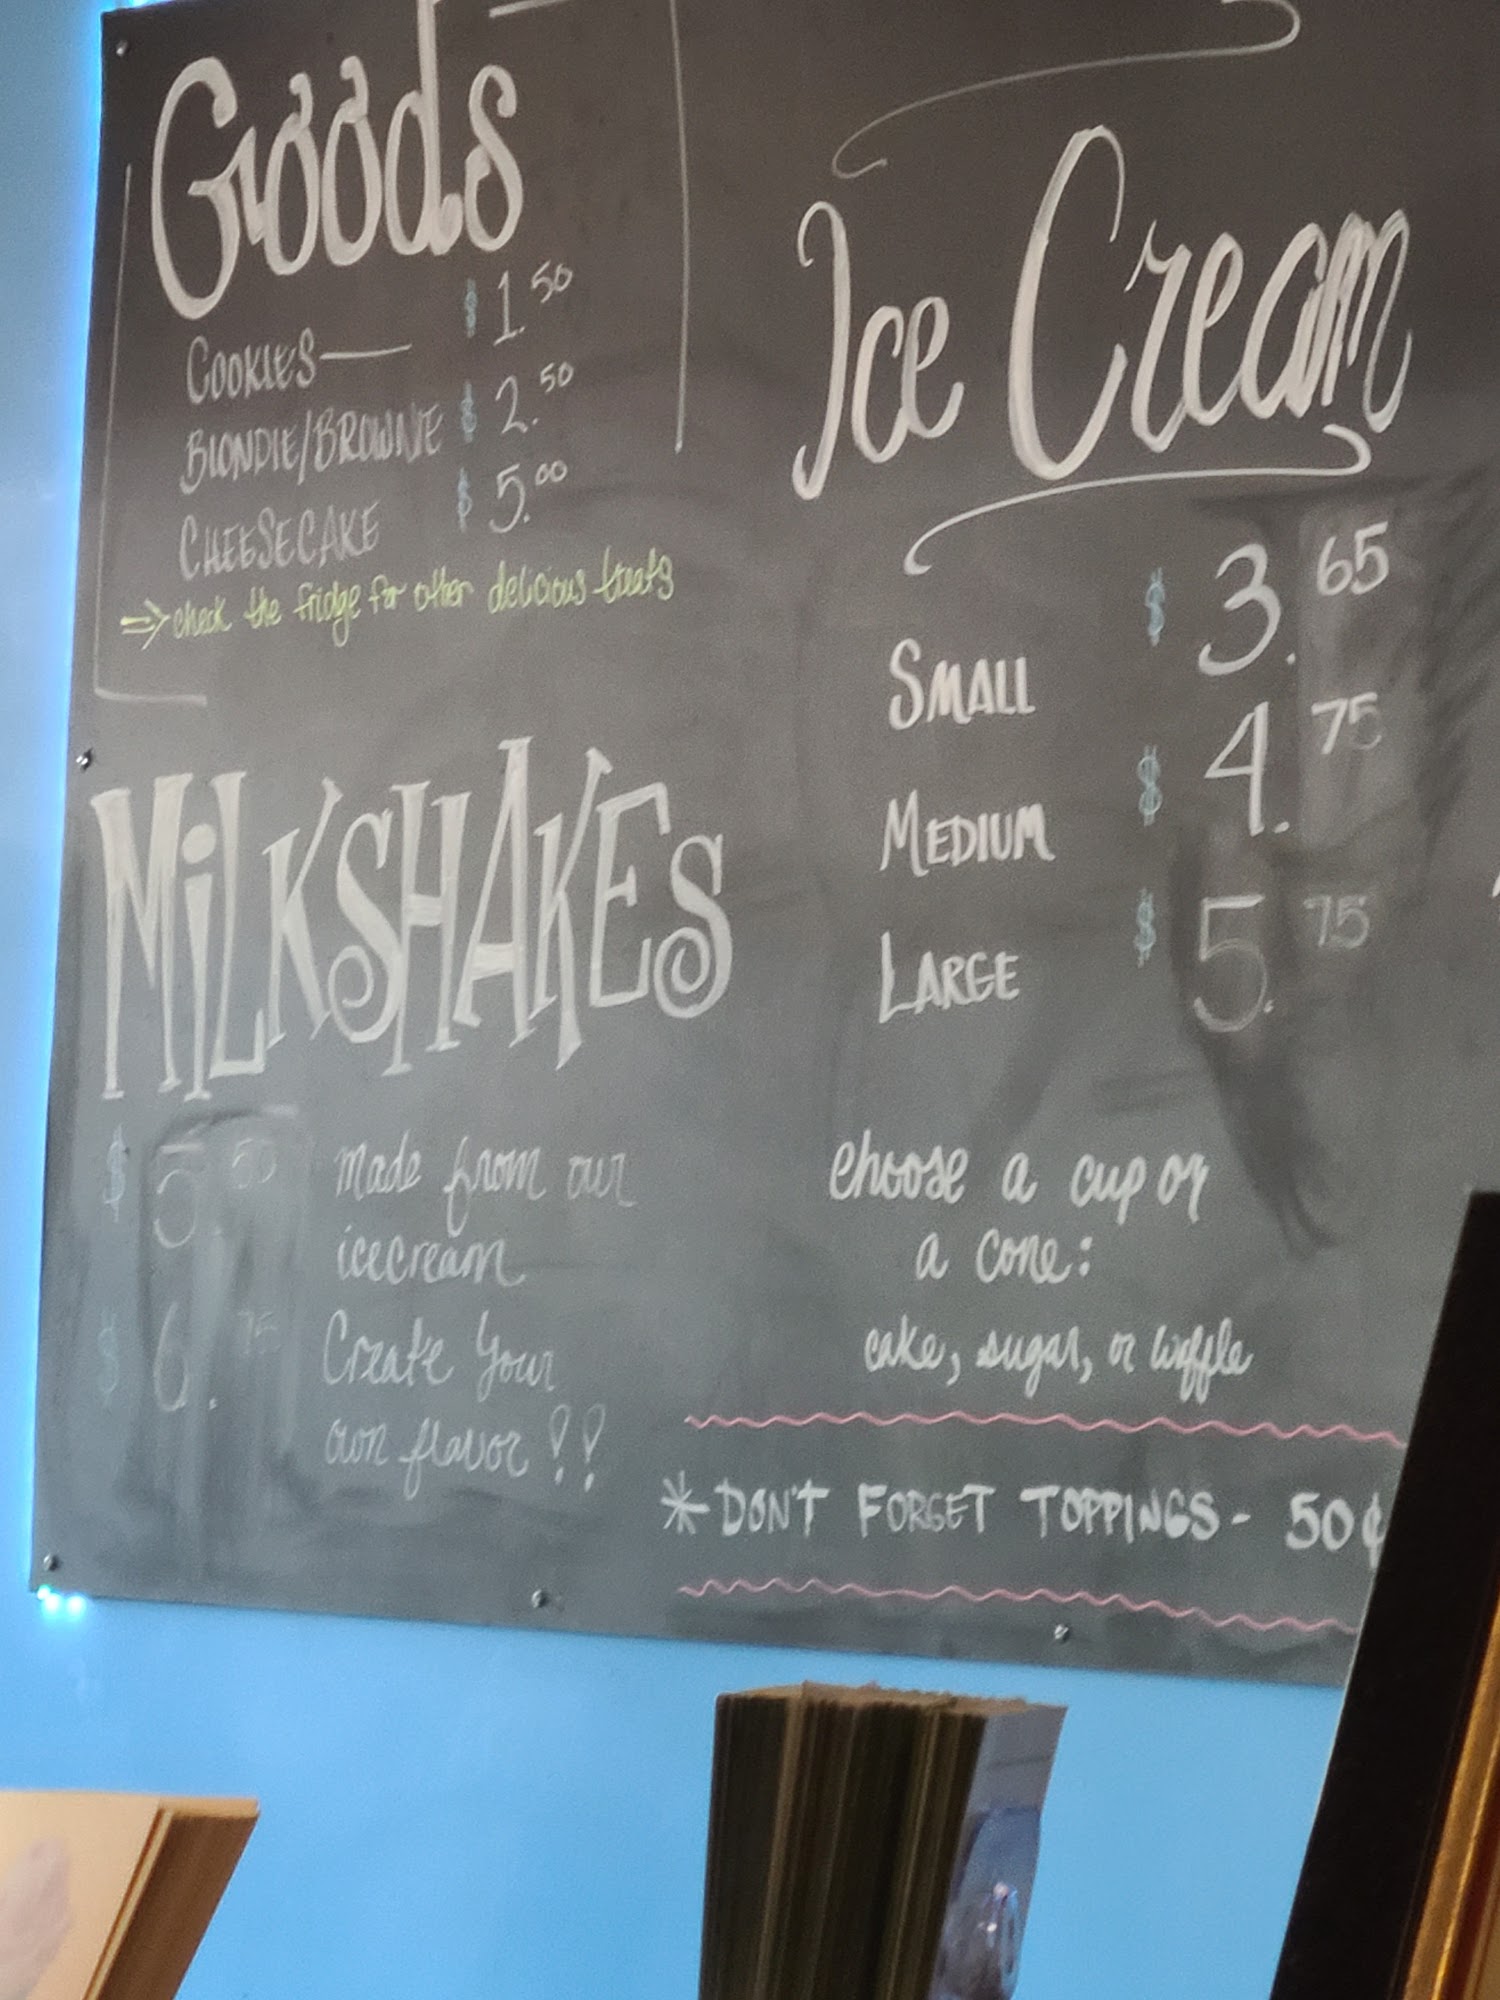 Goods
COOKIES — $ 1.50
BLONDIE/BROWNIE $ 2.50
CHEESECAKE $ 5.00
⇒ check the fridge for other delicious treats
MiLKSHAKES
$ 5.50 made from our
icecream
$ 6.75 Create Your
own flavor!!
Ice Cream
SMALL $ 3.65
MEDIUM $ 4.75
LARGE $ 5.75
choose a cup or
a cone:
cake, sugar, or waffle
*DON'T FORGET TOPPINGS - 50¢